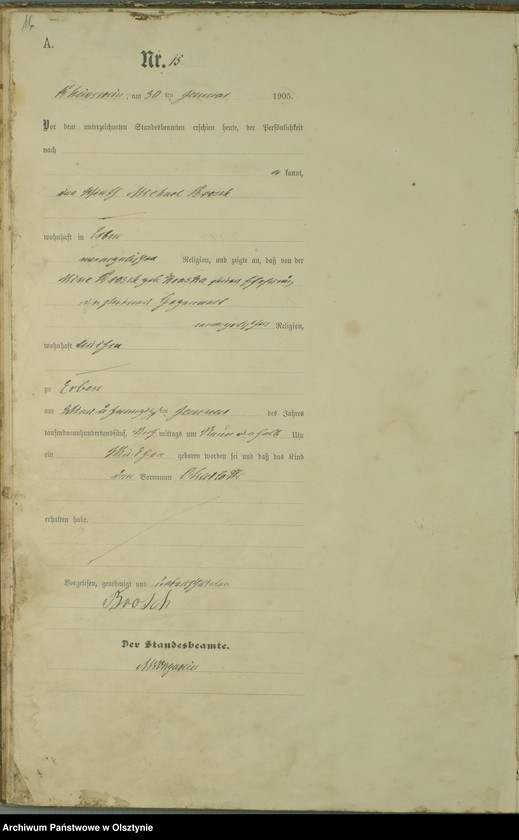 16
A.
Nr. 15
Rheinswein, am 30 ten Januar 1905.
Vor dem unterzeichneten Standesbeamten erschien heute, der Persönlichkeit
nach
kannt,
der Michael Brosch
wohnhaft in Erben
evangelischer Religion, und zeigte an, daß von der
Mine Brosch geb. seiner Ehefrau,
evangelischer Religion,
wohnhaft bei ihm
zu Erben
am ten Januar des Jahres
tausendneunhundertundfünf, Nachmittags um neun Uhr
ein Mädchen geboren worden sei und daß das Kind
den Vornamen Charlotte
erhalten habe.
Vorgelesen, genehmigt und unterschrieben
Brosch
Der Standesbeamte.
Archiwum Państwowe w Olsztynie